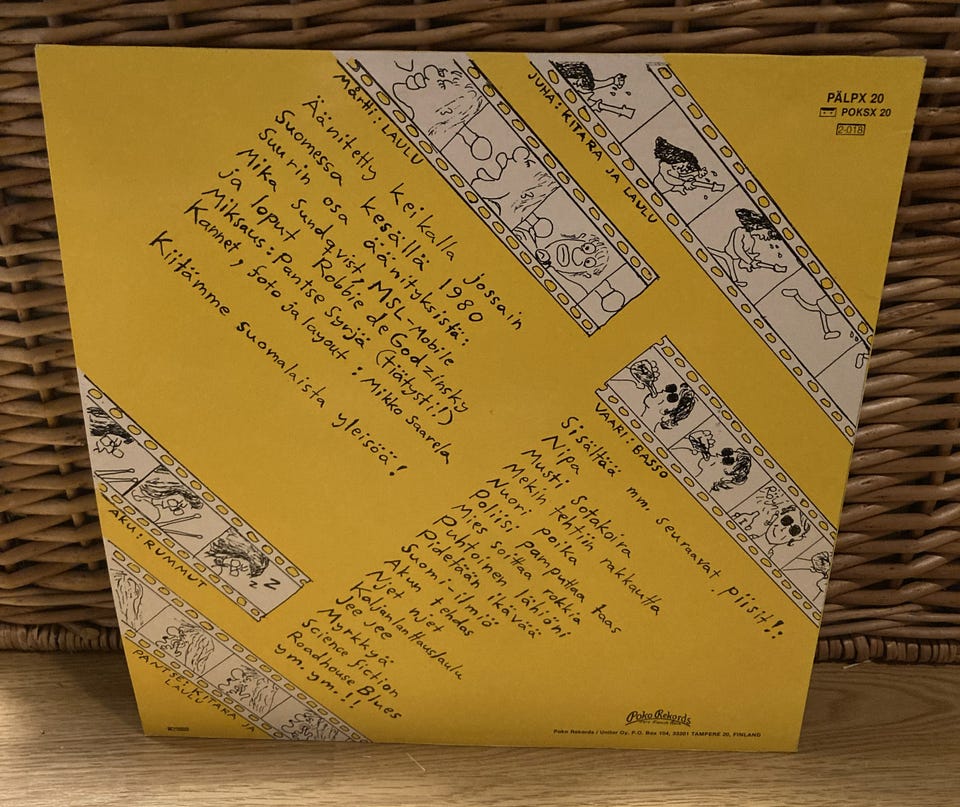 PÄLPX 20
POKSX 20
2-018
Martti: LAULU
JUHA: KITARA JA LAULU
Äänitetty keikalla jossain
Suomessa kesällä 1980
Suurin osa äänityksistä:
Mika Sundqvist, MSL-Mobile
ja loput Robbie de Godzinsky
Miksaus: Pantse Syrjä (tiätysti!)
Kannet, foto ja layout: Mikko Saarela
Kiitämme suomalaista yleisöä!
VAARI: BASSO
Röyh
Sisältää mm. seuraavat piisit!:
Nipa Sotakoira
Musti
Mekin tehtiin rakkautta
Nuori poika
Poliisi pamputtaa taas
Mies soittaa rokkia
Puhtoinen lähiöni
Pidetään ikävää
Suomi-ilmiö
Akun tehdas
Njet njet
Kaljanlanttauslaulu
Jee jee
Myrkkyä
Science fiction
Roadhouse Blues
ym. ym.!!
AKU: RUMMUT
z Z
PANTSE: KITARA JA
LAULU
Poko Rekords
Poko Rekords / Unitor Oy. P.O. Box 104, 33201 TAMPERE 20, FINLAND